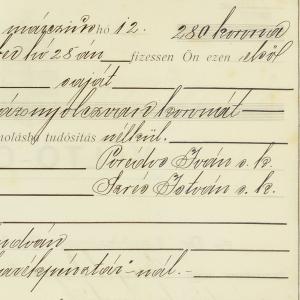 márczius hó 12. 280 korona
hó 28 án fizessen Ön ezen első
saját
száznyolczvan koronát
molásba tudósítás nélkül.
Iván s. k.
István s. k.
takarékpénztár-nál.-